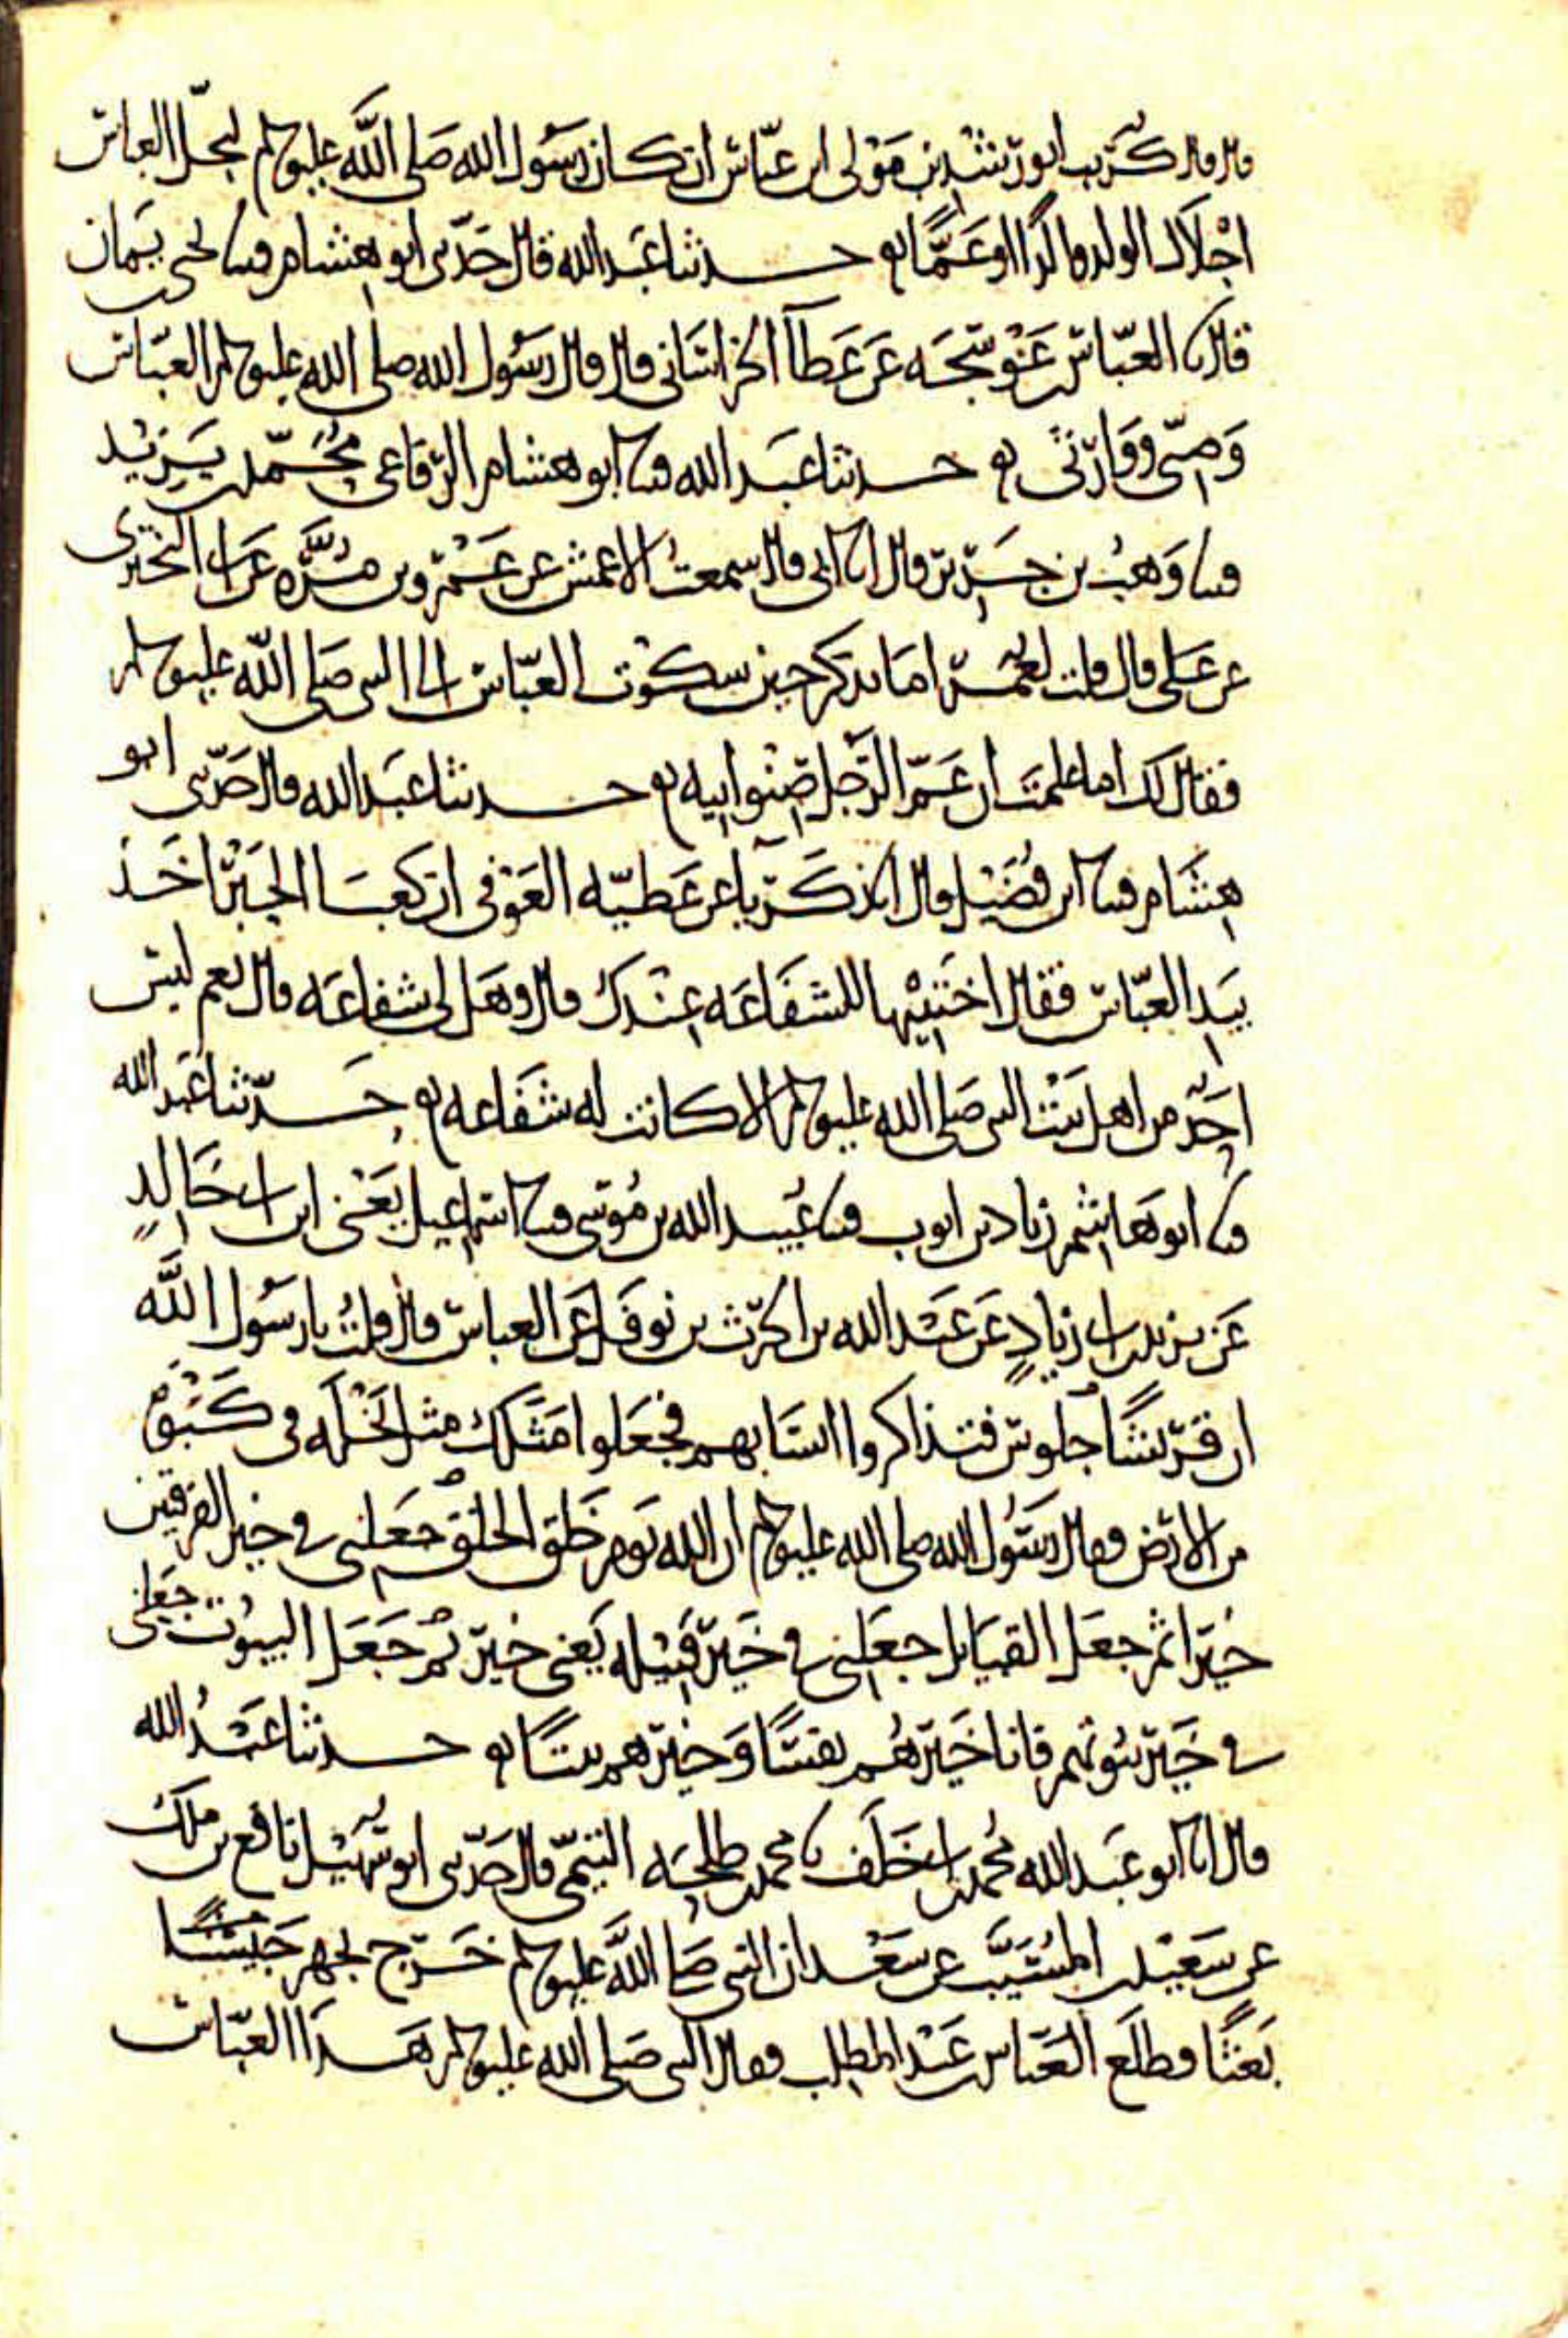 قال قال كريب ابو رشدين مولى ابن عباس ان كان رسول الله صلى الله عليه وسلم ليجل العباس
اجلال الولد والدا او عما حدثنا عبد الله قال حدثني ابو هشام قثنا يحيى بن يمان
قال نا العباس عن عطاء الخراساني قال قال رسول الله صلى الله عليه وسلم العباس
وصيي ووارثي حدثنا عبد الله قثنا ابو هشام الرفاعي محمد بن يزيد
قثنا وهب بن جرير قال انا ابي قال سمعت الاعمش عن عمرو بن مره عن ابي البختري
عن علي قال قلت لعمر اما تذكر حين سكوت العباس الى النبي صلى الله عليه وسلم
فقال لك اما علمت ان عم الرجل صنو ابيه حدثنا عبد الله قال حدثني ابو
هشام قثنا ابن فضيل قال انا زكريا عن عطيه العوفي ان كعبا الحبر اخذ
بيد العباس فقال اختبيها للشفاعه عندك قال وهل لي شفاعه قال نعم ليس
احد من اهل بيت النبي صلى الله عليه وسلم الا كانت له شفاعه حدثنا عبد الله
قثنا ابو هاشم زياد بن ايوب قثنا عبيد الله بن موسى قثنا اسماعيل يعني ابن ابي خالد
عن يزيد بن ابي زياد عن عبد الله بن الحرث بن نوفل عن العباس قال قلت يا رسول الله
ان قريشا جلوس فتذاكروا انسابهم فجعلوا مثلك مثل نخله في كبوه
من الارض فقال رسول الله صلى الله عليه وسلم ان الله يوم خلق الخلق جعلني في خير الفرقتين
خيرا ثم جعل القبايل جعلني في خير قبيله يعني خير ثم جعل البيوت جعلني
في خير بيوتهم فانا خيرهم نفسا وخيرهم بيتا حدثنا عبد الله
قال انا ابو عبد الله محمد بن ابي خلف نا محمد بن طلحه التيمي قال حدثني ابو سهيل نافع بن ملك
عن سعيد بن المسيب عن سعد ان النبي صلى الله عليه وسلم خرج يجهز جيشا
بعثا فطلع العباس بن عبد المطلب فقال النبي صلى الله عليه وسلم هذا العباس